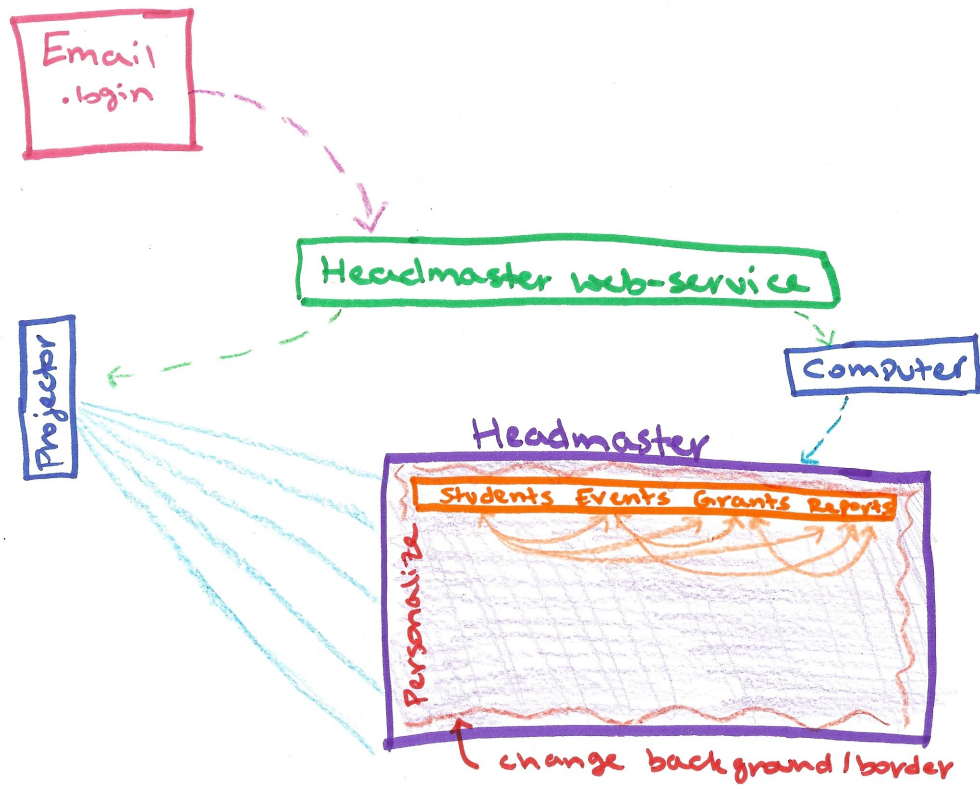 Email
.login
Headmaster web-service
Projector
Computer
Headmaster
Students Events Grants Reports
Personalize
change background/border